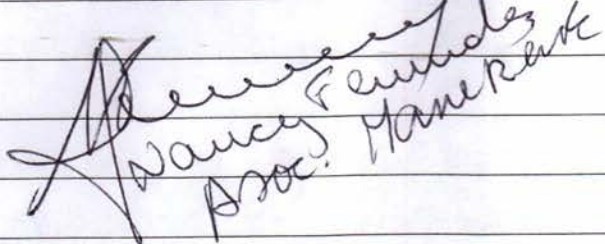 Nancy Fernandez
Asoc. Manekenk